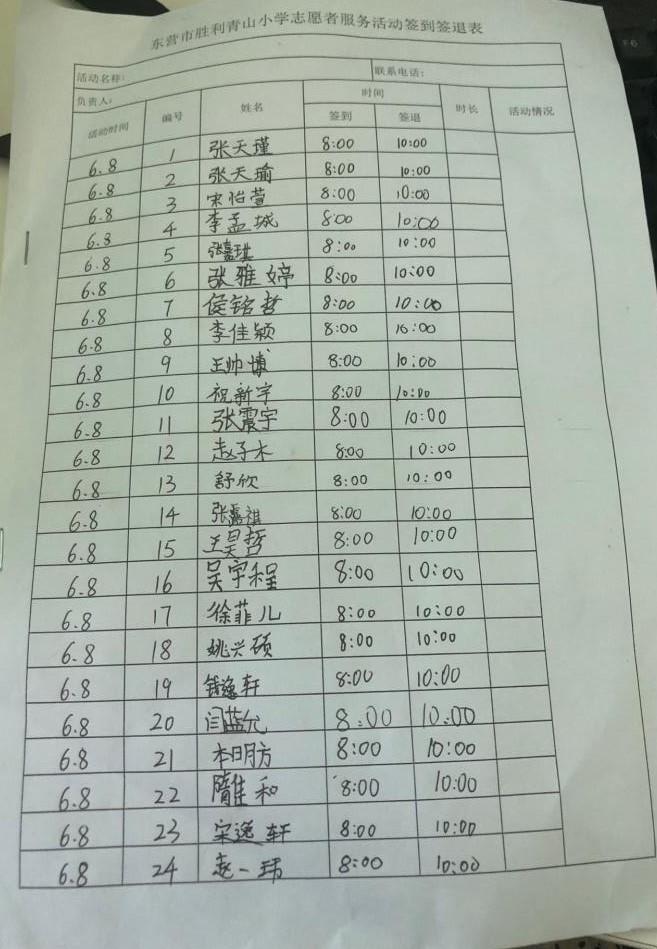 东营市胜利青山小学志愿者服务活动签到签退表
活动名称： 联系电话：
负责人： 时间
活动时间 编号 姓名 签到 签退 时长 活动情况
6.8 1 张天瑾 8:00 10:00
6.8 2 张天瑜 8:00 10:00
6.8 3 宋怡萱 8:00 10:00
6.8 4 李孟城 8:00 10:00
6.8 5 张嘉琪 8:00 10:00
6.8 6 张雅婷 8:00 10:00
6.8 7 侯铭哲 8:00 10:00
6.8 8 李佳颖 8:00 10:00
6.8 9 王帅博 8:00 10:00
6.8 10 祝新宇 8:00 10:00
6.8 11 张震宇 8:00 10:00
6.8 12 赵子木 8:00 10:00
6.8 13 舒欣 8:00 10:00
6.8 14 张嘉祺 8:00 10:00
6.8 15 王昊哲 8:00 10:00
6.8 16 吴宇程 8:00 10:00
6.8 17 徐菲儿 8:00 10:00
6.8 18 姚兴硕 8:00 10:00
6.8 19 钱逸轩 8:00 10:00
6.8 20 闫蓝允 8:00 10:00
6.8 21 本日月方 8:00 10:00
6.8 22 隋佳和 8:00 10:00
6.8 23 宋逸轩 8:00 10:00
6.8 24 赵一玮 8:00 10:00
F6